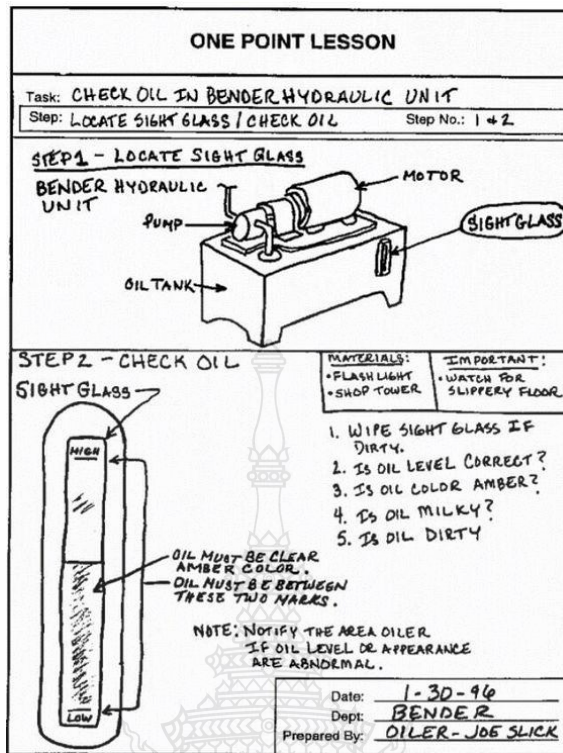 ONE POINT LESSON
Task: CHECK OIL IN BENDER HYDRAULIC UNIT
Step: LOCATE SIGHT GLASS / CHECK OIL Step No.: 1 & 2
STEP 1 - LOCATE SIGHT GLASS
BENDER HYDRAULIC
UNIT
MOTOR
PUMP
SIGHT GLASS
OIL TANK
STEP 2 - CHECK OIL
SIGHT GLASS
MATERIALS:
• FLASH LIGHT
• SHOP TOWER
IMPORTANT:
• WATCH FOR
SLIPPERY FLOOR
HIGH
1. WIPE SIGHT GLASS IF
DIRTY.
2. IS OIL LEVEL CORRECT?
3. IS OIL COLOR AMBER?
4. IS OIL MILKY?
5. IS OIL DIRTY
OIL MUST BE CLEAR
AMBER COLOR.
OIL MUST BE BETWEEN
THESE TWO MARKS.
NOTE: NOTIFY THE AREA OILER
IF OIL LEVEL OR APPEARANCE
ARE ABNORMAL.
LOW
Date: 1-30-96
Dept: BENDER
Prepared By: OILER - JOE SLICK